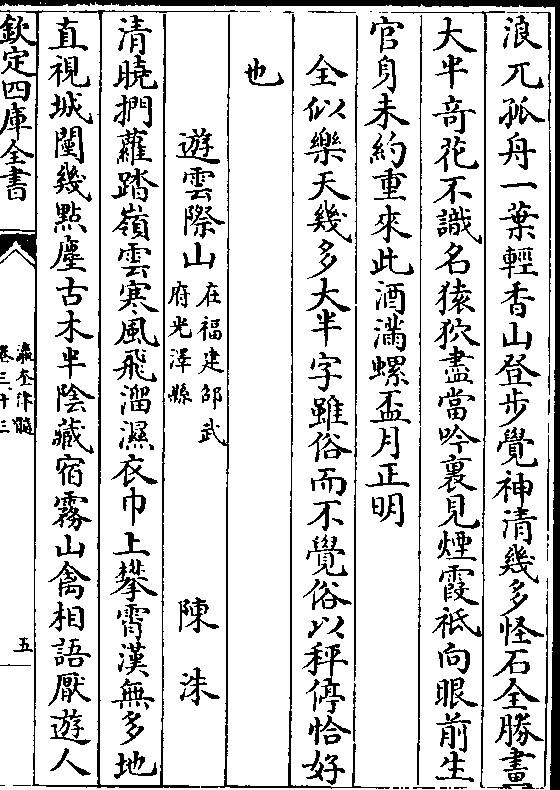 浪兀孤舟一葉輕香山登步覺神清幾多怪石全勝畫
大半竒花不識名猿狖盡當吟裏見煙霞祗向眼前生
官身未約重來此酒滿螺盃月正明
全似樂天幾多大半字雖俗而不覺俗以秤停恰好
也
遊雲際山在福建邵武府光澤縣 陳洙
清曉捫蘿踏嶺雲寒風飛溜濕衣巾上攀霄漢無多地
直視城闉幾點塵古木半陰藏宿霧山禽相語厭遊人
欽定四庫全書
瀛奎律髓
卷三十三
五